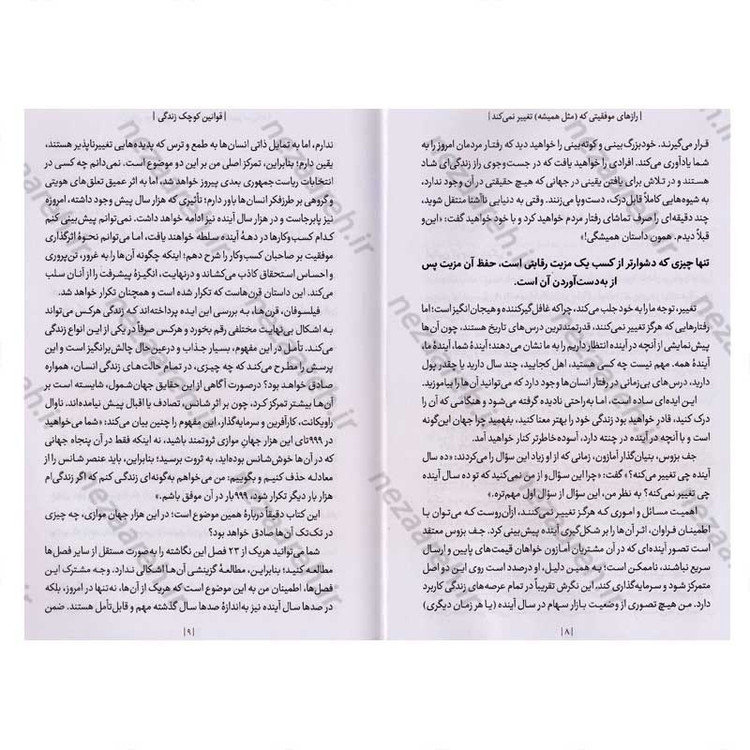 | رازهای موفقیتی که (مثل همیشه) تغییر نمی‌کند |
قرار می‌گیرند. خودبزرگ‌بینی و کوته‌بینی را خواهید دید که رفتار مردمان امروز را به
شما یادآوری می‌کند. افرادی را خواهید یافت که در جست‌وجوی راز زندگی‌ای شاد
هستند و در تلاش برای یافتن یقینی در جهانی که هیچ حقیقتی در آن وجود ندارد،
به شیوه‌هایی کاملاً قابل‌درک، دست‌وپا می‌زنند. وقتی به دنیایی ناآشنا منتقل شوید،
چند دقیقه‌ای را صرف تماشای رفتار مردم خواهید کرد و با خود خواهید گفت: «این‌و
قبلاً دیدم. همون داستان همیشگی!»
تنها چیزی که دشوارتر از کسب یک مزیت رقابتی است، حفظ آن مزیت پس
از به‌دست‌آوردن آن است.
تغییر، توجه ما را به خود جلب می‌کند، چراکه غافل‌گیرکننده و هیجان‌انگیز است؛ اما
رفتارهایی که هرگز تغییر نمی‌کنند، قدرتمندترین درس‌های تاریخ هستند، چون آن‌ها
پیش‌نمایشی از آنچه در آینده انتظار داریم را به ما نشان می‌دهند؛ آیندهٔ شما، آیندهٔ ما،
آیندهٔ همه. مهم نیست چه کسی هستید، اهل کجایید، چند سال دارید یا چقدر پول
دارید، درس‌های بی‌زمانی در رفتار انسان‌ها وجود دارد که می‌توانید آن‌ها را بیاموزید.
این ایده‌ای ساده است، اما به‌راحتی نادیده گرفته می‌شود و هنگامی که آن را
درک کنید، قادر خواهید بود زندگی خود را بهتر معنا کنید، بفهمید چرا جهان این‌گونه
است و با آنچه در آینده در چنته دارد، آسوده‌خاطرتر کنار خواهید آمد.
جف بزوس، بنیان‌گذار آمازون، زمانی که از او زیاد این سؤال را می‌کردند: «ده سال
آینده چی تغییر می‌کنه؟» گفت: «چرا این سؤال‌و از من نمی‌کنید که تو ده سال آینده
چی تغییر نمی‌کنه؟ به نظر من، این سؤال از سؤال اول مهم‌تره.»
اهمیت مسائل و اموری که هرگز تغییر نمی‌کنند، ازآن‌روست که می‌توان با
اطمینان فراوان، اثر آن‌ها را بر شکل‌گیری آینده پیش‌بینی کرد. جف بزوس معتقد
است تصور آینده‌ای که در آن مشتریان آمازون خواهان قیمت‌های پایین و ارسال
سریع نباشند، ناممکن است؛ به همین دلیل، او درصدد است روی این دو اصل
متمرکز شود و سرمایه‌گذاری کند. این نگرش تقریباً در تمام عرصه‌های زندگی کاربرد
دارد. من هیچ تصوری از وضعیت بازار سهام در سال آینده (یا هر زمان دیگری)
| ۸ |
| قوانین کوچک زندگی |
ندارم، اما به تمایل ذاتی انسان‌ها به طمع و ترس که پدیده‌هایی تغییرناپذیر هستند،
یقین دارم؛ بنابراین، تمرکز اصلی من بر این دو موضوع است. نمی‌دانم چه کسی در
انتخابات ریاست‌جمهوری بعدی پیروز خواهد شد، اما به اثر عمیق تعلق‌های هویتی
و گروهی بر طرزفکر انسان‌ها باور دارم؛ تأثیری که هزار سال پیش وجود داشته، امروزه
نیز پابرجاست و در هزار سال آینده نیز ادامه خواهد داشت. نمی‌توانم پیش‌بینی کنم
کدام کسب‌وکارها در دههٔ آینده سلطه خواهند یافت، اما می‌توانم نحوهٔ اثرگذاری
موفقیت بر صاحبان کسب‌وکار را شرح دهم؛ اینکه چگونه آن‌ها را به غرور، تن‌پروری
و احساس استحقاق کاذب می‌کشاند و درنهایت، انگیزهٔ پیشرفت را از آنان سلب
می‌کند. این داستان قرن‌هاست که تکرار شده است و همچنان تکرار خواهد شد.
فیلسوفان، قرن‌ها، به بررسی این ایده پرداخته‌اند که زندگی هرکس می‌تواند
به اشکال بی‌نهایت مختلفی رقم بخورد و هرکس صرفاً در یکی از این انواع زندگی
می‌کند. تأمل در این مفهوم، بسیار جذاب و درعین‌حال چالش‌برانگیز است و این
پرسش را مطرح می‌کند که چه چیزی، در تمام حالت‌های زندگی انسان، همواره
صادق خواهد بود؟ درصورت آگاهی از این حقایق جهان‌شمول، شایسته است بر
آن‌ها بیشتر تمرکز کرد، چون بر اثر شانس، تصادف یا اقبال پیش نیامده‌اند. ناوال
راویکانت، کارآفرین و سرمایه‌گذار، این مفهوم را چنین بیان می‌کند: «شما می‌خواهید
در ۹۹۹تای این هزار جهان موازی ثروتمند باشید، نه اینکه فقط در آن پنجاه جهانی
که در آن‌ها خوش‌شانس بوده‌اید، به ثروت برسید؛ بنابراین، باید عنصر شانس را از
معادله حذف کنیم و بگوییم: من می‌خواهم به‌گونه‌ای زندگی کنم که اگر زندگی‌ام
هزار بار دیگر تکرار شود، ۹۹۹بار در آن موفق باشم.»
این کتاب دقیقاً دربارهٔ همین موضوع است؛ در این هزار جهان موازی، چه چیزی
در تک‌تک آن‌ها صادق خواهد بود؟
شما می‌توانید هریک از ۲۳ فصل این نگاشته را به‌صورت مستقل از سایر فصل‌ها
مطالعه کنید؛ بنابراین، مطالعهٔ گزینشی آن‌ها اشکالی ندارد. وجه مشترک این
فصل‌ها، اطمینان من به این موضوع است که هریک از آن‌ها، نه‌تنها در امروز، بلکه
در صدها سال آینده نیز به‌اندازهٔ صدها سال گذشته مهم و قابل‌تأمل هستند. ضمن
| ۹ |
nezaardeh.ir